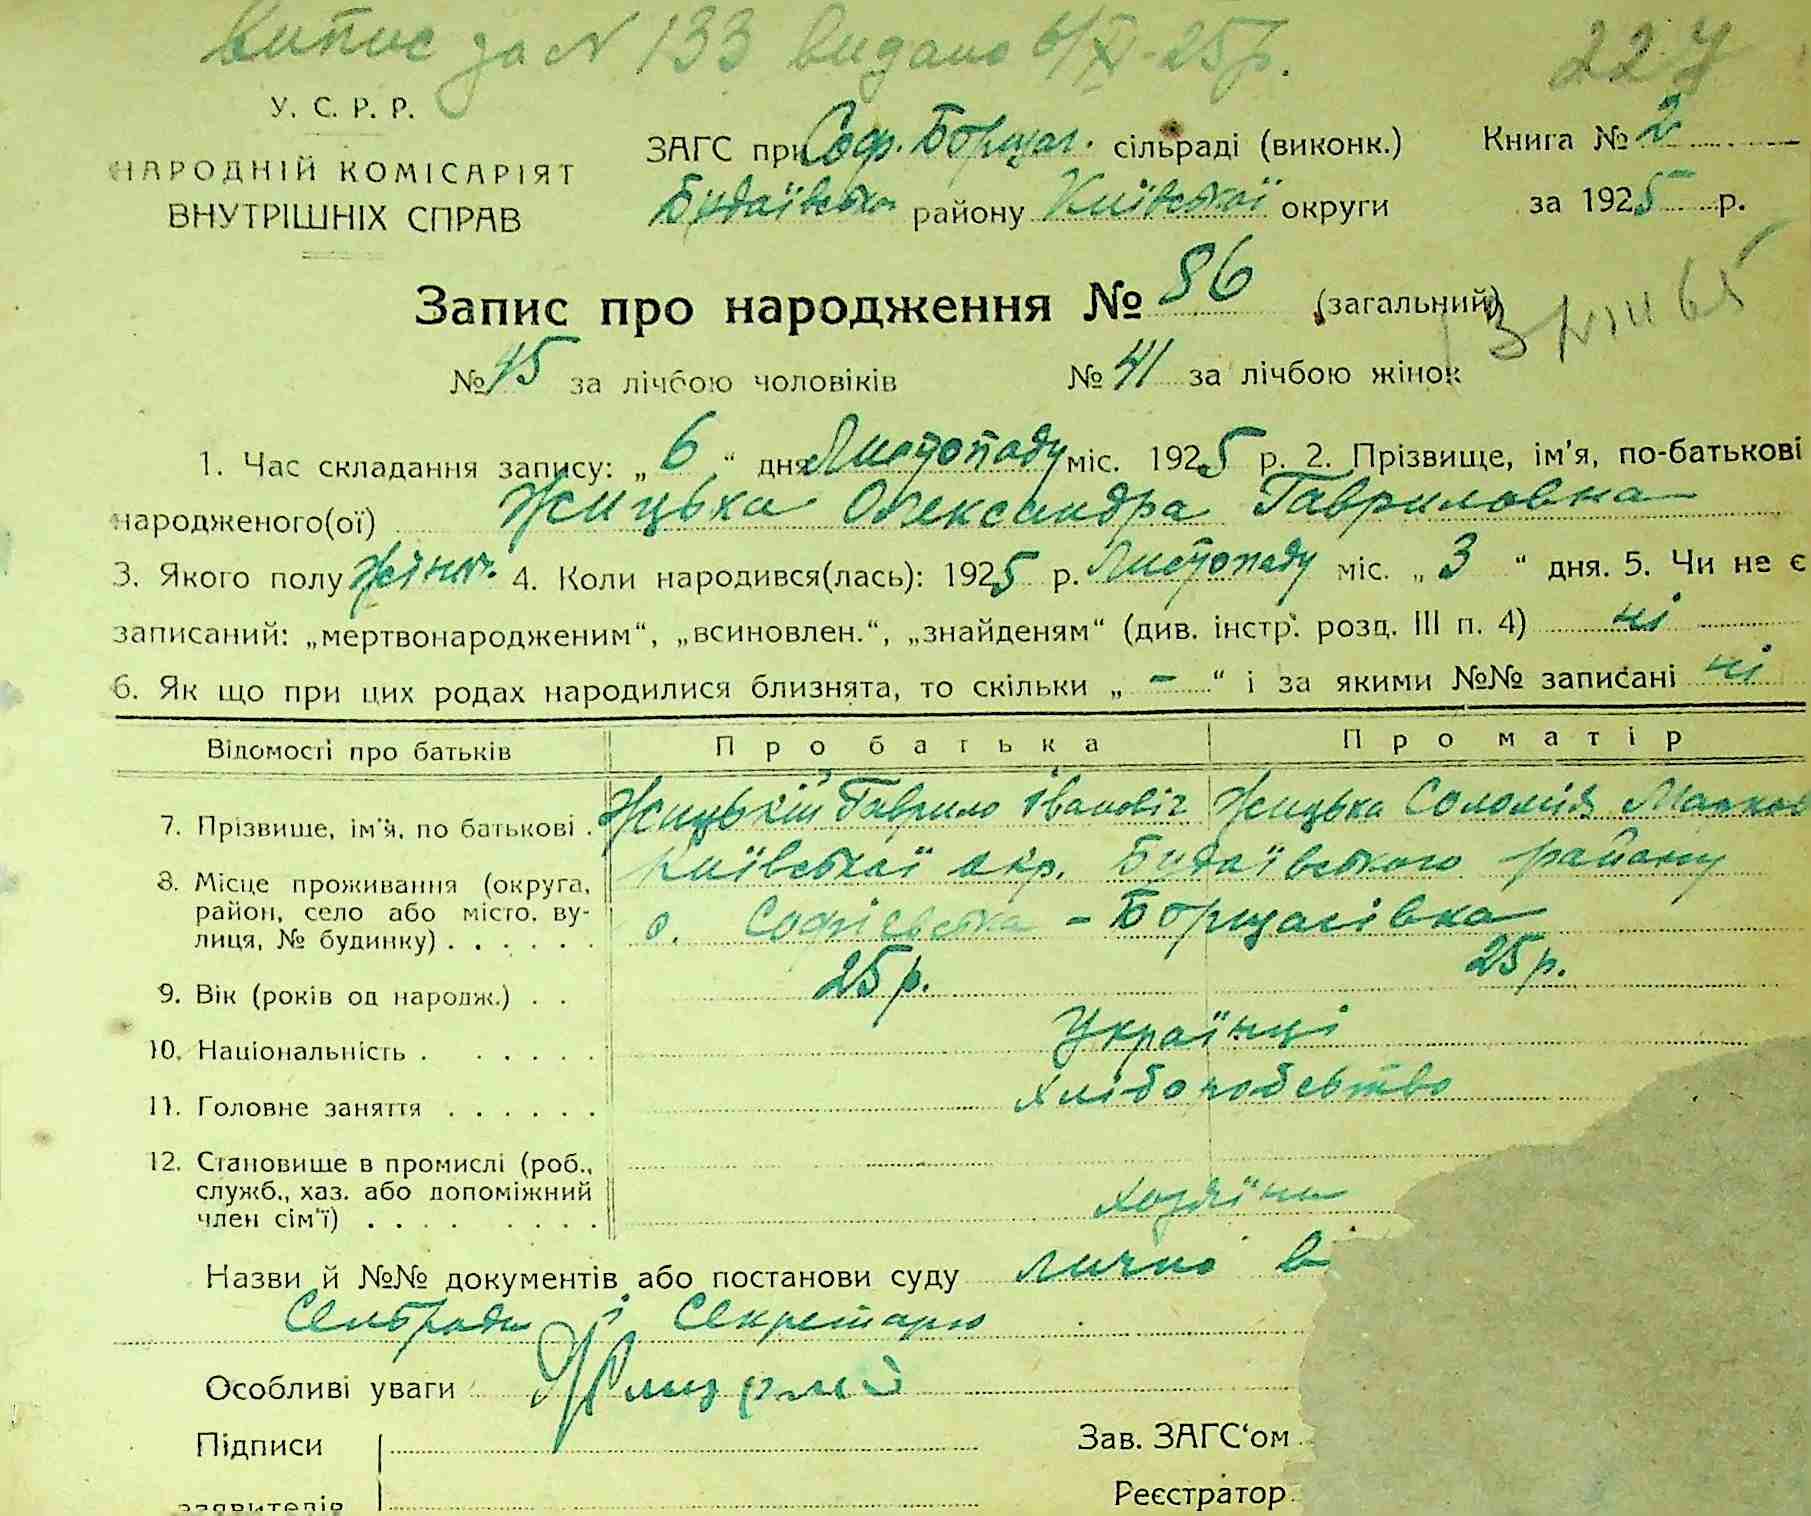 Випис за N 133 видано 6/XI-25р.
227
У. С. Р. Р.
НАРОДНІЙ КОМІСАРІЯТ
ВНУТРІШНІХ СПРАВ
ЗАГС при Соф. Борщаг. сільраді (виконк.)
Будаївськ. району Київської округи
Книга № 2
за 1925 р.
Запис про народження № 86 (загальний)
№ 45 за лічбою чоловіків № 41 за лічбою жінок
1. Час складання запису: „ 6 “ дня Листопаду міс. 1925 р. 2. Прізвище, ім'я, по-батькові
народженого(ої) Жицька Олександра Гавриловна
3. Якого полу жіноч. 4. Коли народився(лась): 1925 р. Листопаду міс. „ 3 “ дня. 5. Чи не є
записаний: „мертвонародженим“, „всиновлен.“, „знайденям“ (див. інстр. розд. III п. 4) ні
6. Як що при цих родах народилися близнята, то скільки „ - “ і за якими №№ записані ні
Відомості про батьків Про батька Про матір
7. Прізвише, ім'я, по батькові . Жицькій Гаврило Івановіч Жицька Соломія
8. Місце проживання (округа, район, село або місто, ву-лиця, № будинку) . . . . . . Київської окр. Будаївського району
с. Софієвська - Борщагівка
9. Вік (років од народж.) . . 25 р. 25 р.
10. Національність . . . . . . . Українці
11. Головне заняття . . . . . . хліборобство
12. Становише в промислі (роб.,
служб., хаз. або допоміжний
член сім'ї) . . . . . . . . хозяїни
Назви й №№ документів або постанови суду лично в
Сельради і Секретарю
Особливі уваги
Підписи
заявителів
Зав. ЗАГС'ом
Реєстратор